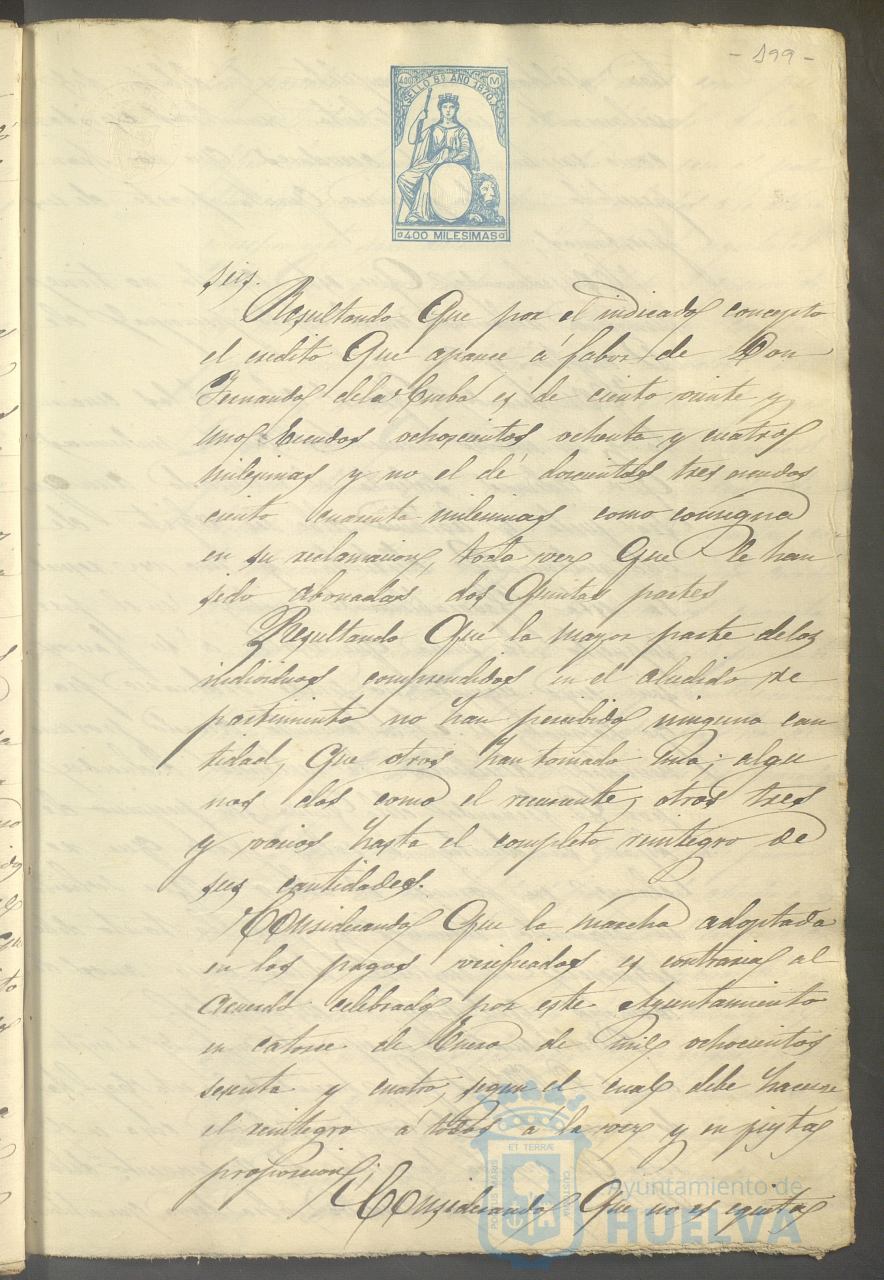 - 199 -
400 M
SELLO 8º AÑO 1870
400 MILESIMAS
seis.
Resultando Que por el indicado concepto
el credito Que aparece á fabor de Don
Fernando dela Corba es de ciento veinte y
uno Escudos ochocientos ochenta y cuatro
milesimas y no el de doscientos tres escudos
ciento cuarenta milesimas como consigna
en su reclamacion, toda vez Que le han
sido abonadas dos Quintas partes
Resultando Que la mayor parte delos
individuos comprendidos en el aludido re
partimiento no han percibido ninguna can
tidad, Que otros han tomado una; algu
nos dos como el recurrente, otros tres
y varios hasta el completo reintegro de
sus cantidades.
Considerando Que la marcha adoptada
en los pagos verificados es contraria al
Acuerdo celebrado por este Ayuntamiento
en catorce de Enero de mil ochocientos
sesenta y cuatro, segun el cual debe hacerse
el reintegro á todos á la vez y en justa
proporcion;
Considerando Que no es equitativo
PORTUS MARIS ET TERRÆ CUSTODIA
Ayuntamiento de
HUELVA